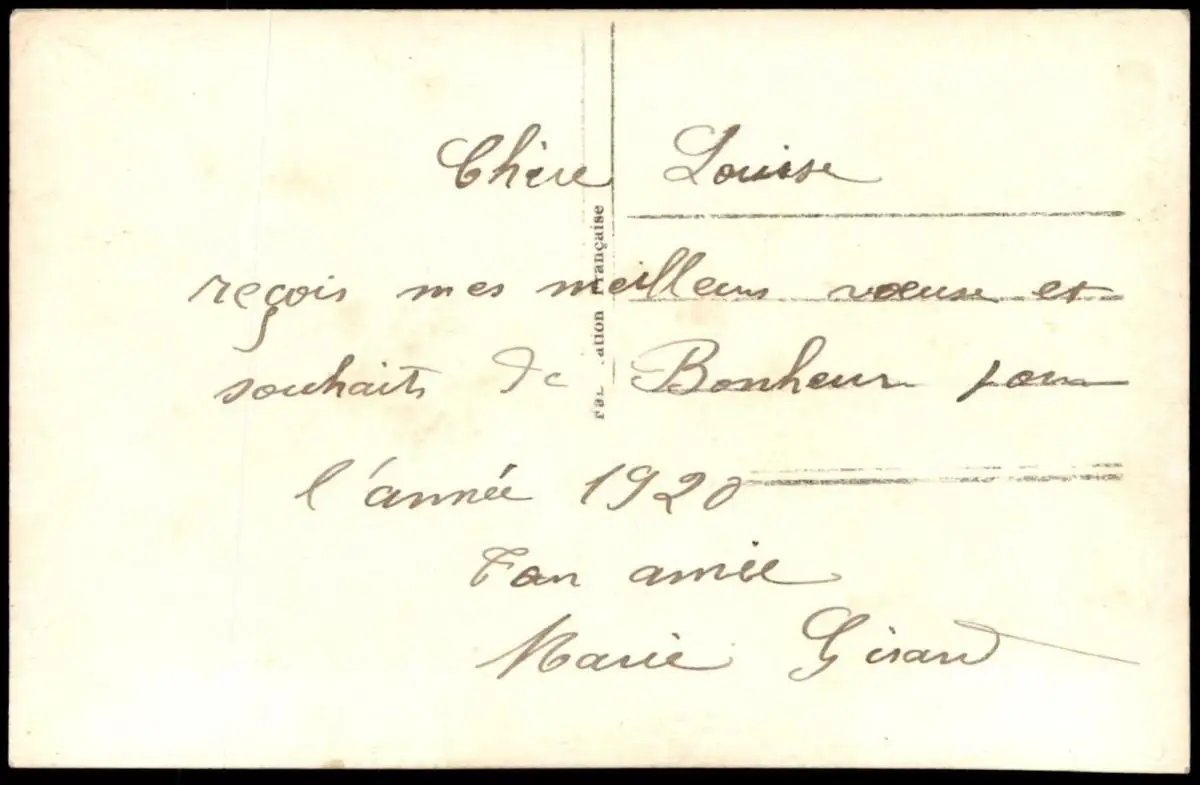 Chère Louise
reçois mes meilleurs vœuse et
souhaits de Bonheur pour
l'année 1920
Ton amie
Marie Girard
ation Française